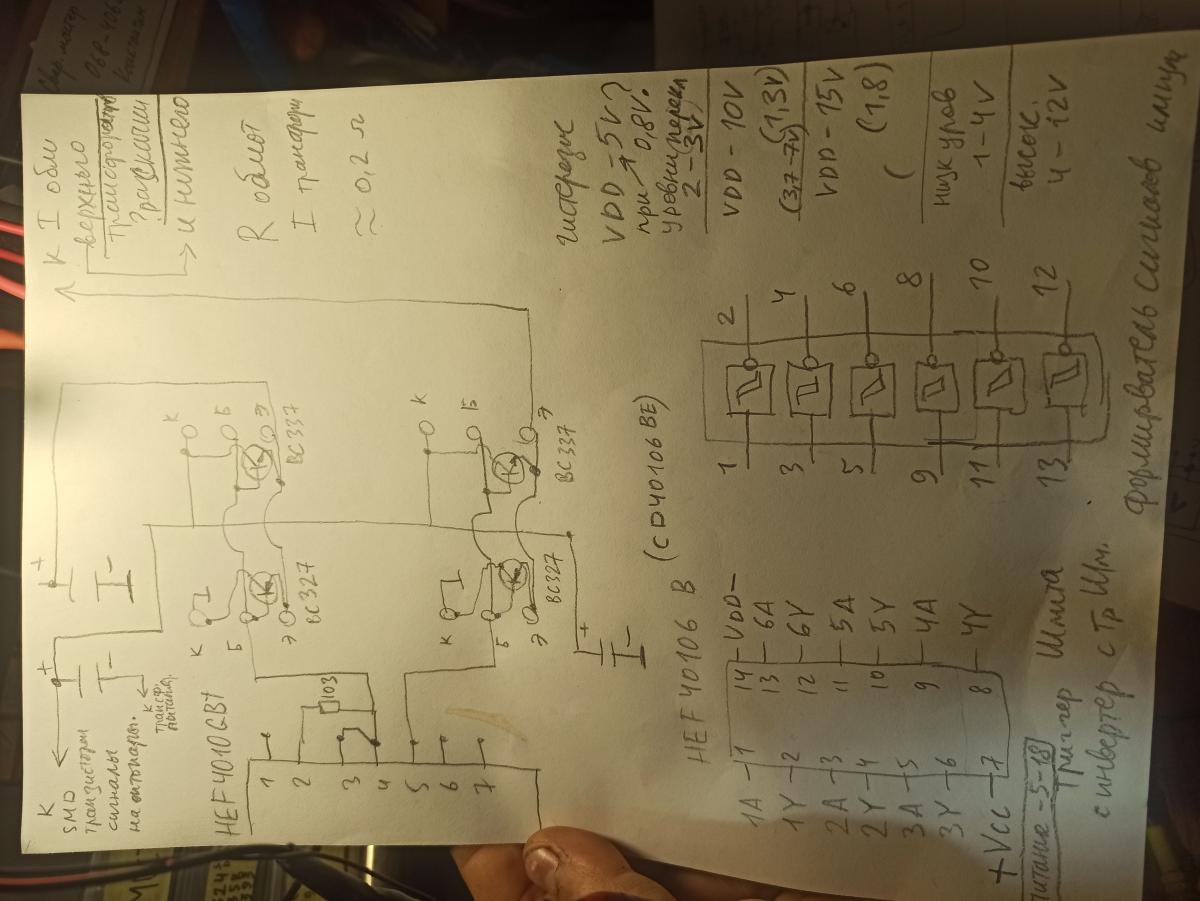 К
SMD
транзистории
сигналы
на оптопары.
К
трансф.
питания.
+
+
К I обм
верхнего
трансформато
раскачки
и нижнего
R обмот
I трансформ
≈ 0,2 Ω
HEF40106BT
1
2
3
4
5
6
7
103
К
Б
Э
BC327
К
Б
Э
BC337
К
Б
Э
BC327
К
Б
Э
BC337
+
гистерезис
VDD - 5V?
при → 0,8V.
уровни перекл
2 - 3V)
VDD - 10V
(3,7-7V) (1,3V)
VDD - 15V
( (1,8)
низк уров
1 - 4V
высок.
4 - 12V
HEF40106 B (CD40106BE)
1A - 1 14 - VDD -
1Y - 2 13 - 6A
2A - 3 12 - 6Y
2Y - 4 11 - 5A
3A - 5 10 - 5Y
3Y - 6 9 - 4A
+ Vcc - 7 8 - 4Y
питание - 5 - 18
1 2
3 4
5 6
9 8
11 10
13 12
Триггер Шмита
с инвертер с Тр Шм.
Формирватель сигналов